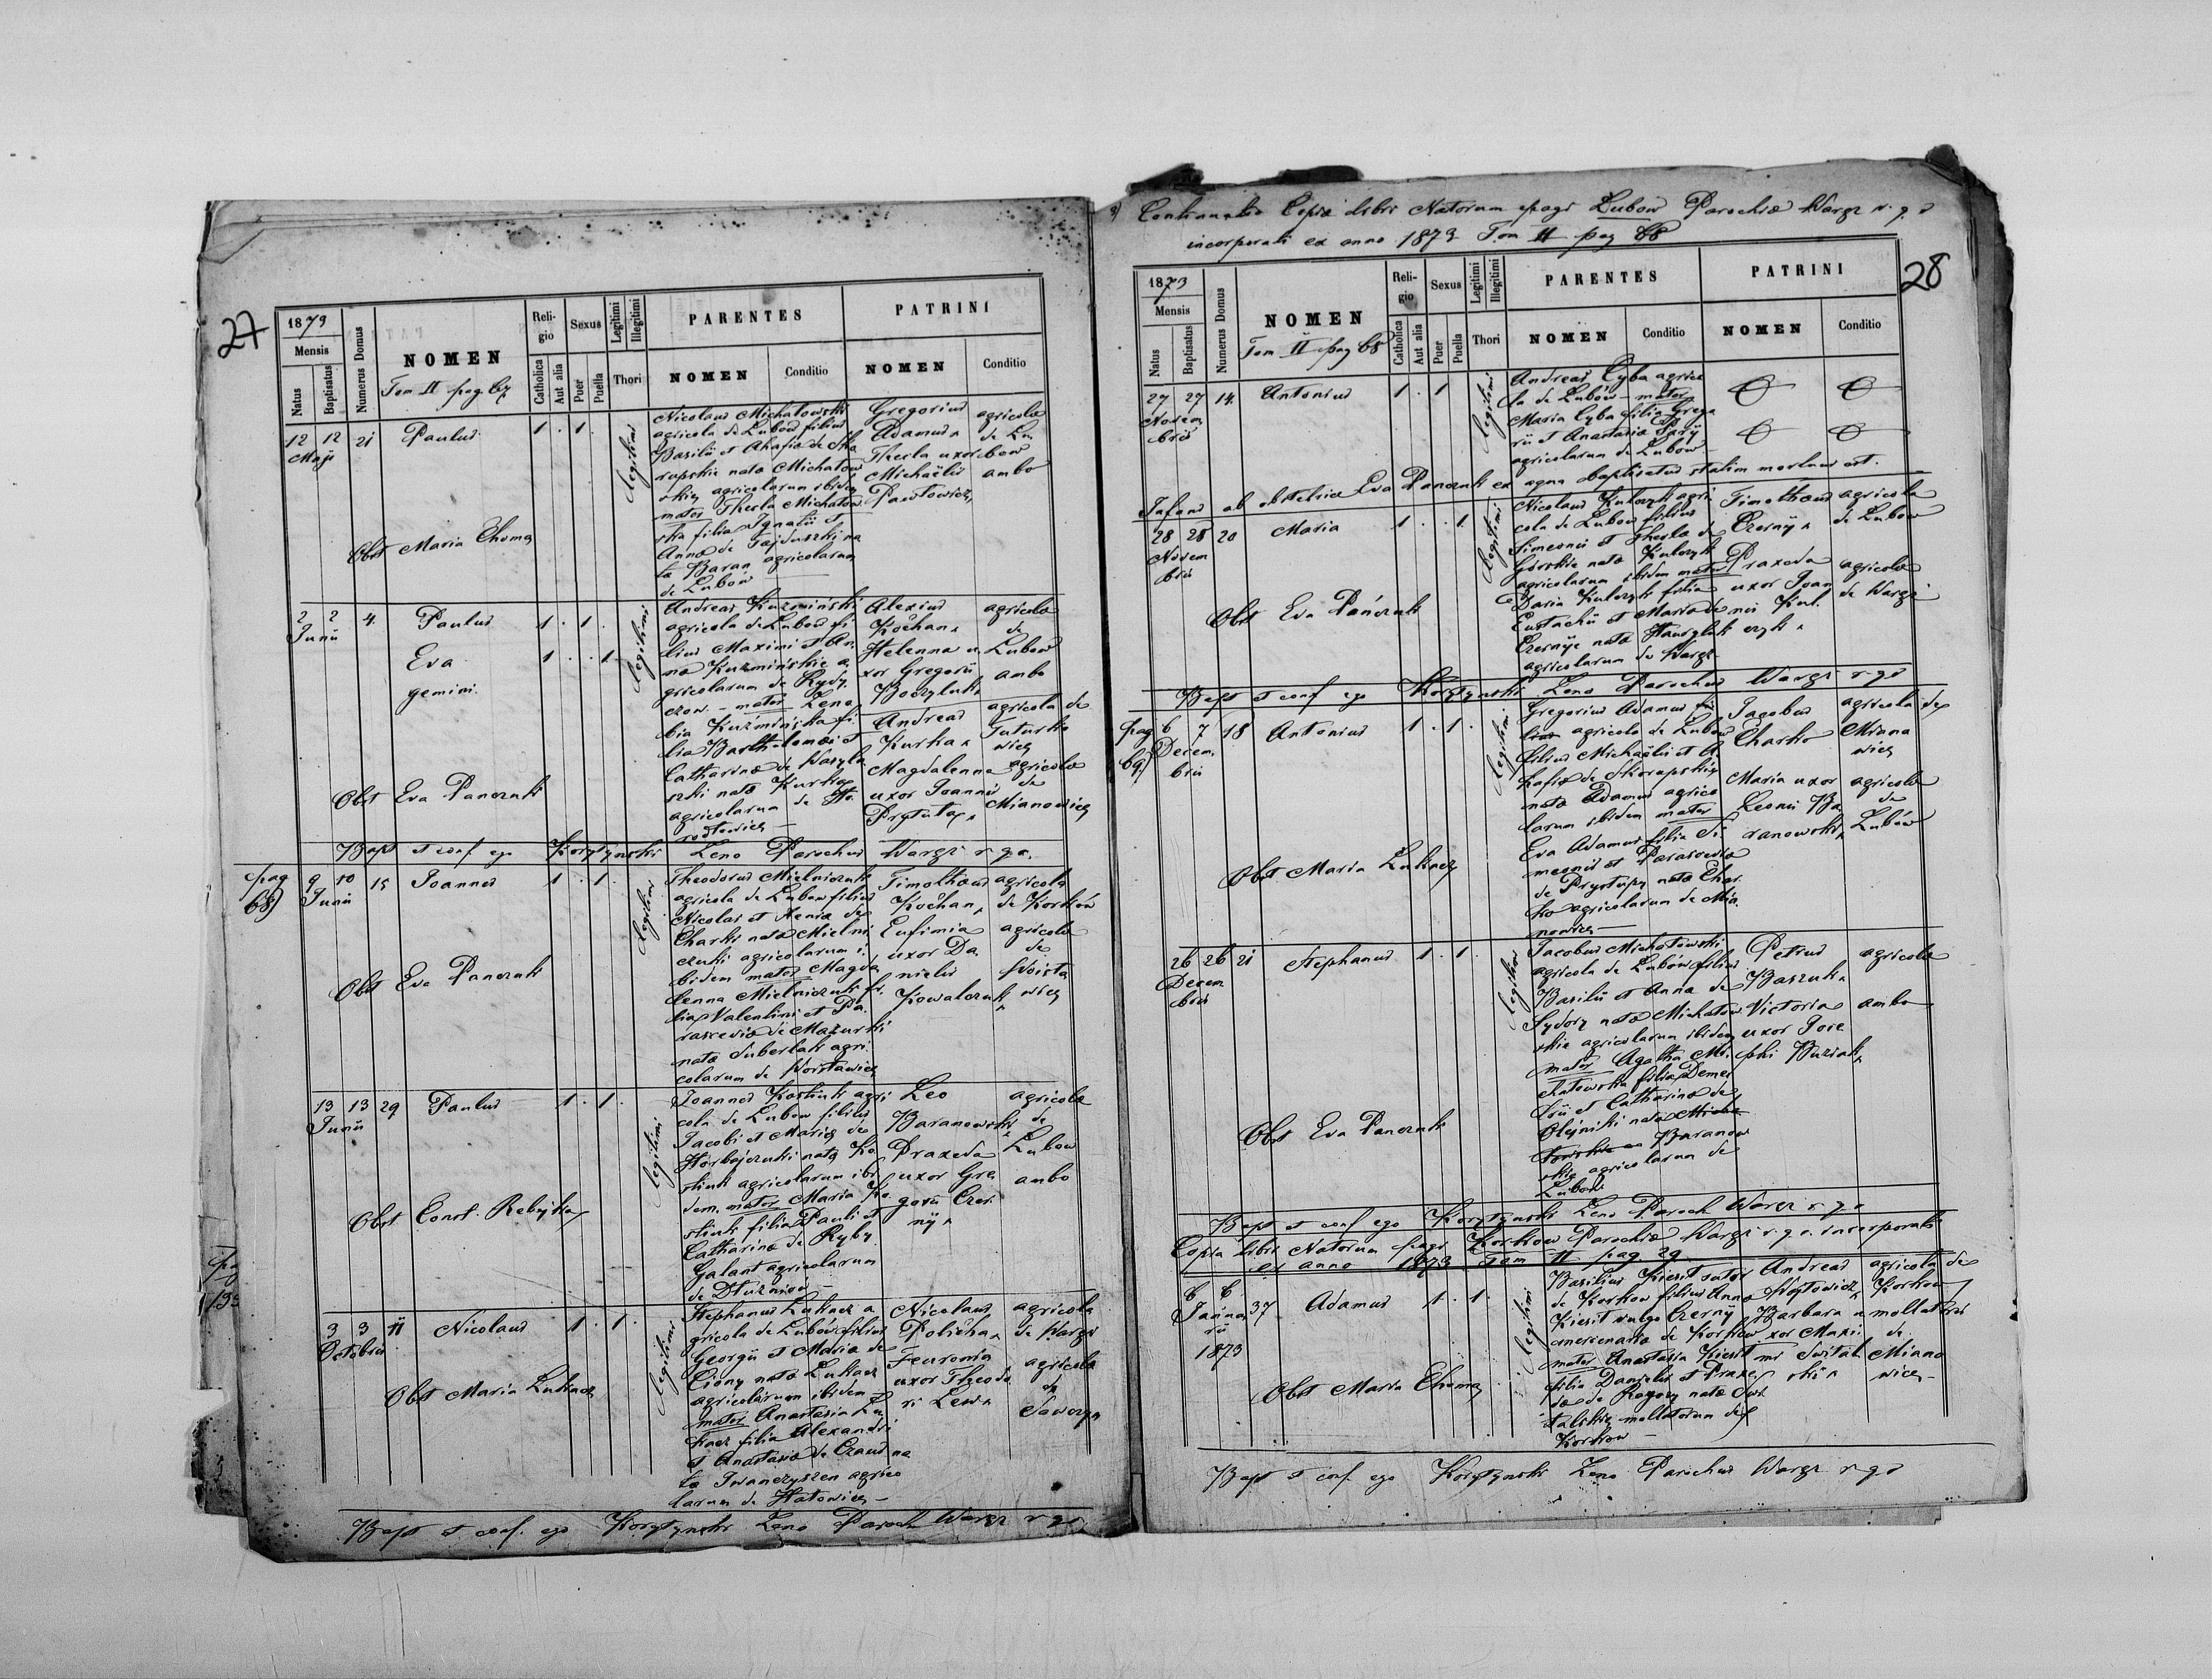 27
1873
Mensis
Natus
Baptisatus
Numerus Domus
NOMEN
Tom II pag. 67
Religio
Catholica
Aut alia
Sexus
Puer
Puella
Legitimi
Illegitimi
Thori
PARENTES
NOMEN
Conditio
PATRINI
NOMEN
Conditio
12 12 21 Paulus 1 . 1 .
Maji
legitimi
Obst Maria Choma
Nicolaus Michałowski
agricola de Lubow filius
Basilii et Ahafia de Sko
rupskie nata Michałow
skie agricolarum ibidem
mater Thecla Michałow
ska filia Ignatii et
Anna de Fajduszki na
ta Baran agricolarum
de Lubow
Gregorius
Adamus
Thecla uxor
Michaëlis
Pawłowicz
agricola
de Lu
bow
ambo
2 2 4. Paulus 1 . 1 .
Junii
Eva 1 . . 1
gemini.
legitimi
Obst Eva Panczuk
Andreas Kuzmiński
agricola de Lubow fi
lius Maximi et An
na Kuzmińskie a
gricolarum de
czow. - mater Zeno
bia Kuzmińska fi
lia Bartholomæi et
Catharina de Wasyla
szki nata Kurka
agricolarum de Ho
rodłowice
Alexius
Kochan
Helenna u
xor Gregorii
Andreas
Kurka
Magdalenna
uxor Joannis
Prytuła
agricola
de
Lubow
ambo
agricola de
Tuturko
wice
agricola
de
Mianowice
Bapt et conf ego Korytynski Zeno Parochus Waręż r. g. c.
pag
68)
9 10 15 Joannes 1 . 1 .
Junii
legitimi
Obst Eva Panczuk
Theodorus Mielniczuk
agricola de Lubow filius
Nicolai et Xenia de
Charki nata Mielni
czuki agricolarum i
bidem mater Magda
lenna Mielniczuk fi
lia Valentini et Pa
rascevia de Mazurki
nata Suberlak agri
colarum de Woisławice
Timothæus
Kochan
Eufimia
uxor Da
nielis
Kowalczuk
agricola
de Korków
agricola
de
Woisła
wice
13 13 29 Paulus 1 . 1 .
Junii
legitimi
Obst Const. Rebijka
Joannes Kostiuk agri
cola de Lubow filius
Jacobi et Maria de
Horbajczuki nata Ko
stiuk agricolarum ibi
dem. mater Maria Ko
stiuk filia Pauli et
Catharina de Ryby
Galant agricolarum
de Dłużniów
Leo
Baranowski
Praxeda
uxor Gre
gorii Czer
nij
agricola
de
Lubow
ambo
3 3 11 Nicolaus 1 . 1 .
Octobris
legitimi
Obst Maria Lukacz
Stephanus Lukacz a
gricola de Lubów filius
Georgii et Maria de
Ciony nata Lukacz
agricolarum ibidem
mater Anastasia Lu
kacz filia Alexandri
et Anastasia de Czaus na
ta Iwanczyszen agrico
larum de Hatowice
Nicolaus
Policha
Feuronia
uxor Theodo
ri Lewa
agricola
de Waręż
agricola
de
Sawczyn
Bapt et conf. ego Korytynski Zeno Paroch Waręż r. g. c.
Continuatio Copia libri Natorum pagi Lubow Parochiæ Waręż r. g. c
incorporati ex anno 1873 Tom II pag 68
28
1873
Mensis
Natus
Baptisatus
Numerus Domus
NOMEN
Tom II pag 68
Religio
Catholica
Aut alia
Sexus
Puer
Puella
Legitimi
Illegitimi
Thori
PARENTES
NOMEN
Conditio
PATRINI
NOMEN
Conditio
27 27 14. Antonius 1 . 1
Novem
bris
legitimi
Andreas Cyba agrico
la de Lubów - mater
Maria Cyba filia Grego
rii et Anastasia
agricolarum de Lubow
Infans ab obstetrice Eva Panczuk ex aqua baptisatus statim mortuus est.
28 28 20 Maria 1 . . 1
Novem
bris
legitimi
Obst Eva Panczuk
Nicolaus Kulczyk agri
cola de Lubow filius
Simeonis et Thecla de
Górskie nata Kulczyk
agricolarum ibidem mater
Daria Kulczyk filia
Eustachii et Maria de
Czernije nata Hawryluk
agricolarum de Waręż
Timothæus
Czernij
Praxeda
uxor Joan
nis Kul
czyk
agricola
de Lubow
agricola
de Waręż
Bapt et conf ego Korytynski Zeno Parochus Waręż r. g. c
pag
69)
6 7 18 Antonius 1 . 1
Decem
bris
legitimi
Obst Maria Lukacz
Gregorius Adamus
agricola de Lubow
filius Michaëlis et A
hafia de Skorupskie
nata Adamus agrico
larum ibidem mater
Eva Adamus filia Si
meonis et Parascevia
de Prystupy nata Char
ko agricolarum de Mia
nowice
Jacobus
Charko
Maria uxor
Leonis Ba
ranowski
agricola de
Miano
wice
agricola
de
Lubów
26 26 21 Stephanus 1 . 1
Decem
bris
legitimi
Obst Eva Panczuk
Jacobus Michałowski
agricola de Lubów filius
Basilii et Anna de
Sydory nata Michałow
skie agricolarum ibidem
mater Agatha Mi
chałowska filia Deme
trii et Catharina de
Olejniki nata
Baranow
skie agricolarum de
Lubow
Petrus
Baszuk
Victoria
uxor Jose
phi Buziak
agricola
ambo
Bapt et conf ego Korytynski Zeno Paroch Waręż r. g. c
Copia libri Natorum pagi Korkow Parochiæ Waręż r. g. c. incorporati
ex anno 1873 Tom II pag 29
6 6 37 Adamus 1 . 1
Janua
rii
1873
legitimi
Obst Maria Choma
Basilius Kiesit sator
de Korkow filius Anna
Kiesit vulgo Czernij
mercenaria de Korkow
mater Anastasia Kiesit
filia Danielis et Praxe
da de Rogozy nata Swi
talskie mollatorum de
Korkow
Andreas
Wojtowicz
Barbara u
xor Maxi
mi Switals
ski
agricola de
Korkow
mollatoris
de
Miano
wice
Bapt et conf. ego Korytynski Zeno Parochus Waręż r. g. c